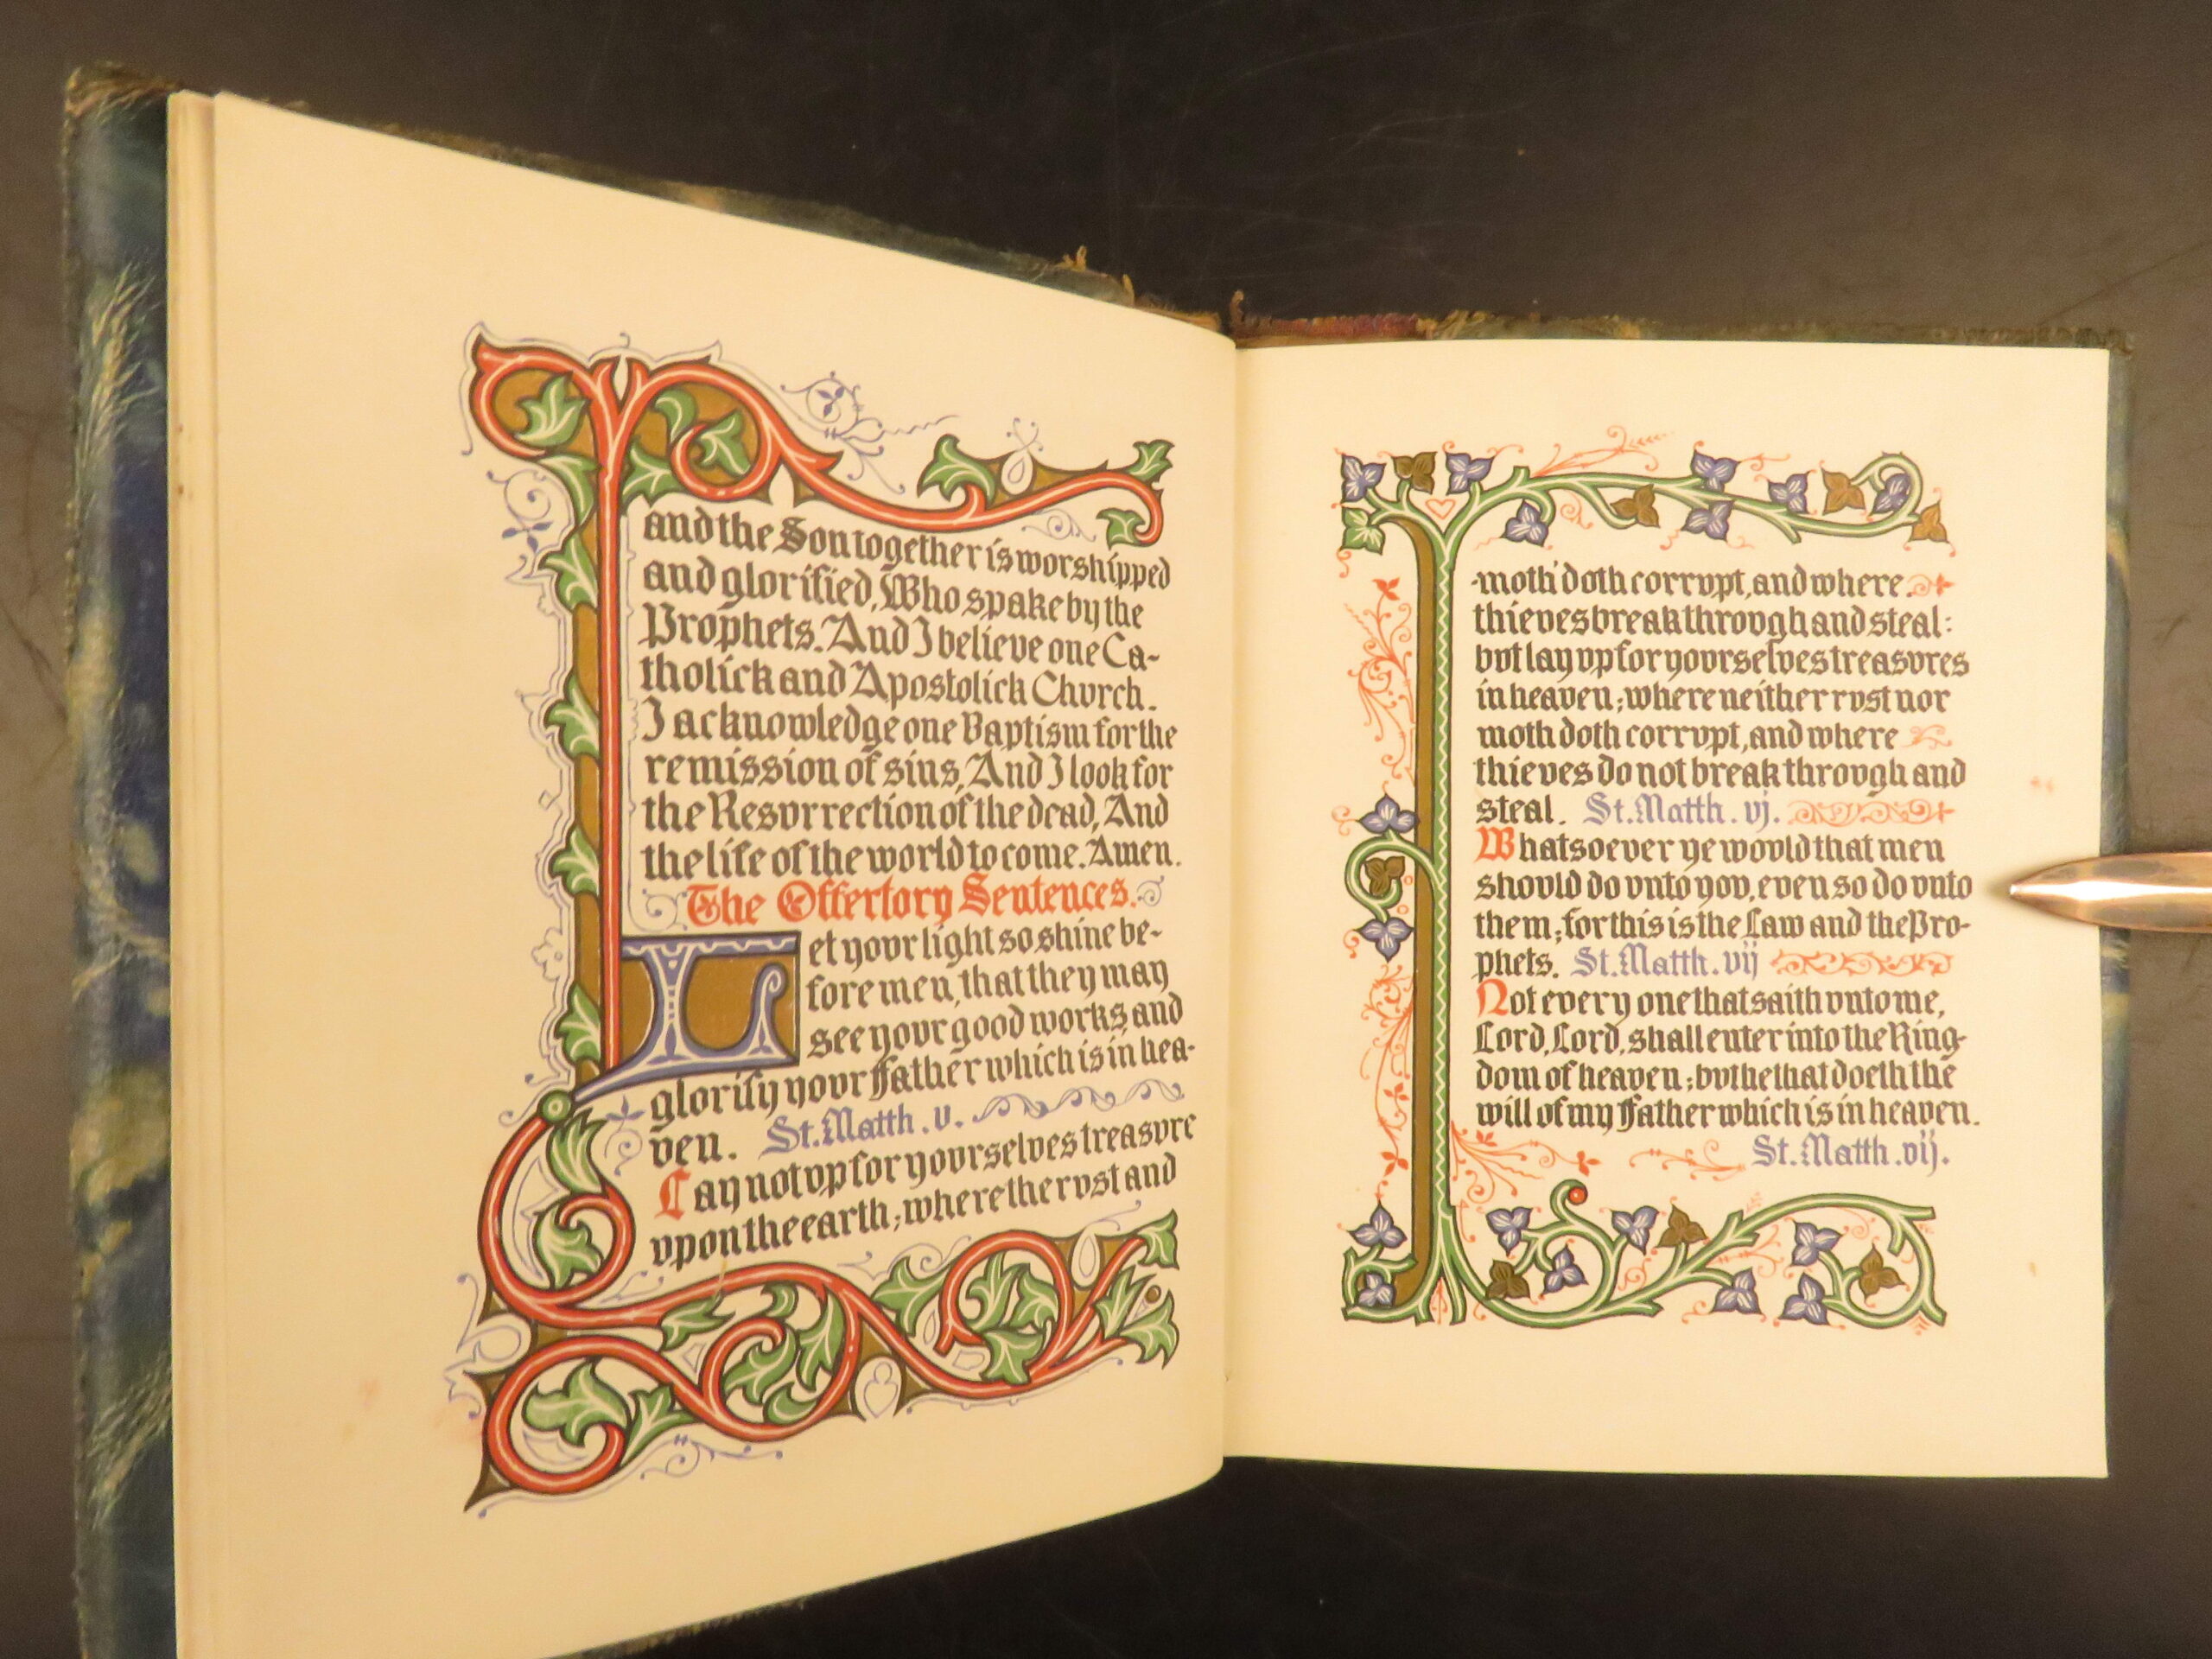 and the Son together is worshipped
and glorified, Who spake by the
Prophets. And I believe one Ca-
tholick and Apostolick Chvrch.
I acknowledge one Baptism for the
remission of sins, And I look for
the Resvrrection of the dead, And
the life of the world to come. Amen.
The Offertory Sentences.
Let yovr light so shine be-
fore men, that they may
see yovr good works, and
glorify yovr Father which is in hea-
ven. St. Matth. v.
Lay not vp for yovrselves treasvre
vpon the earth; where the rvst and
moth doth corrvpt, and where
thieves break throvgh and steal:
bvt lay vp for yovrselves treasvres
in heaven; where neither rvst nor
moth doth corrvpt, and where
thieves do not break throvgh and
steal. St. Matth. vj.
Whatsoever ye wovld that men
shovld do vnto yov, even so do vnto
them; for this is the Law and the Pro-
phets. St. Matth. vij
Not every one that saith vnto me,
Lord, Lord, shall enter into the King-
dom of heaven; bvt he that doeth the
will of my Father which is in heaven.
St. Matth. vij.